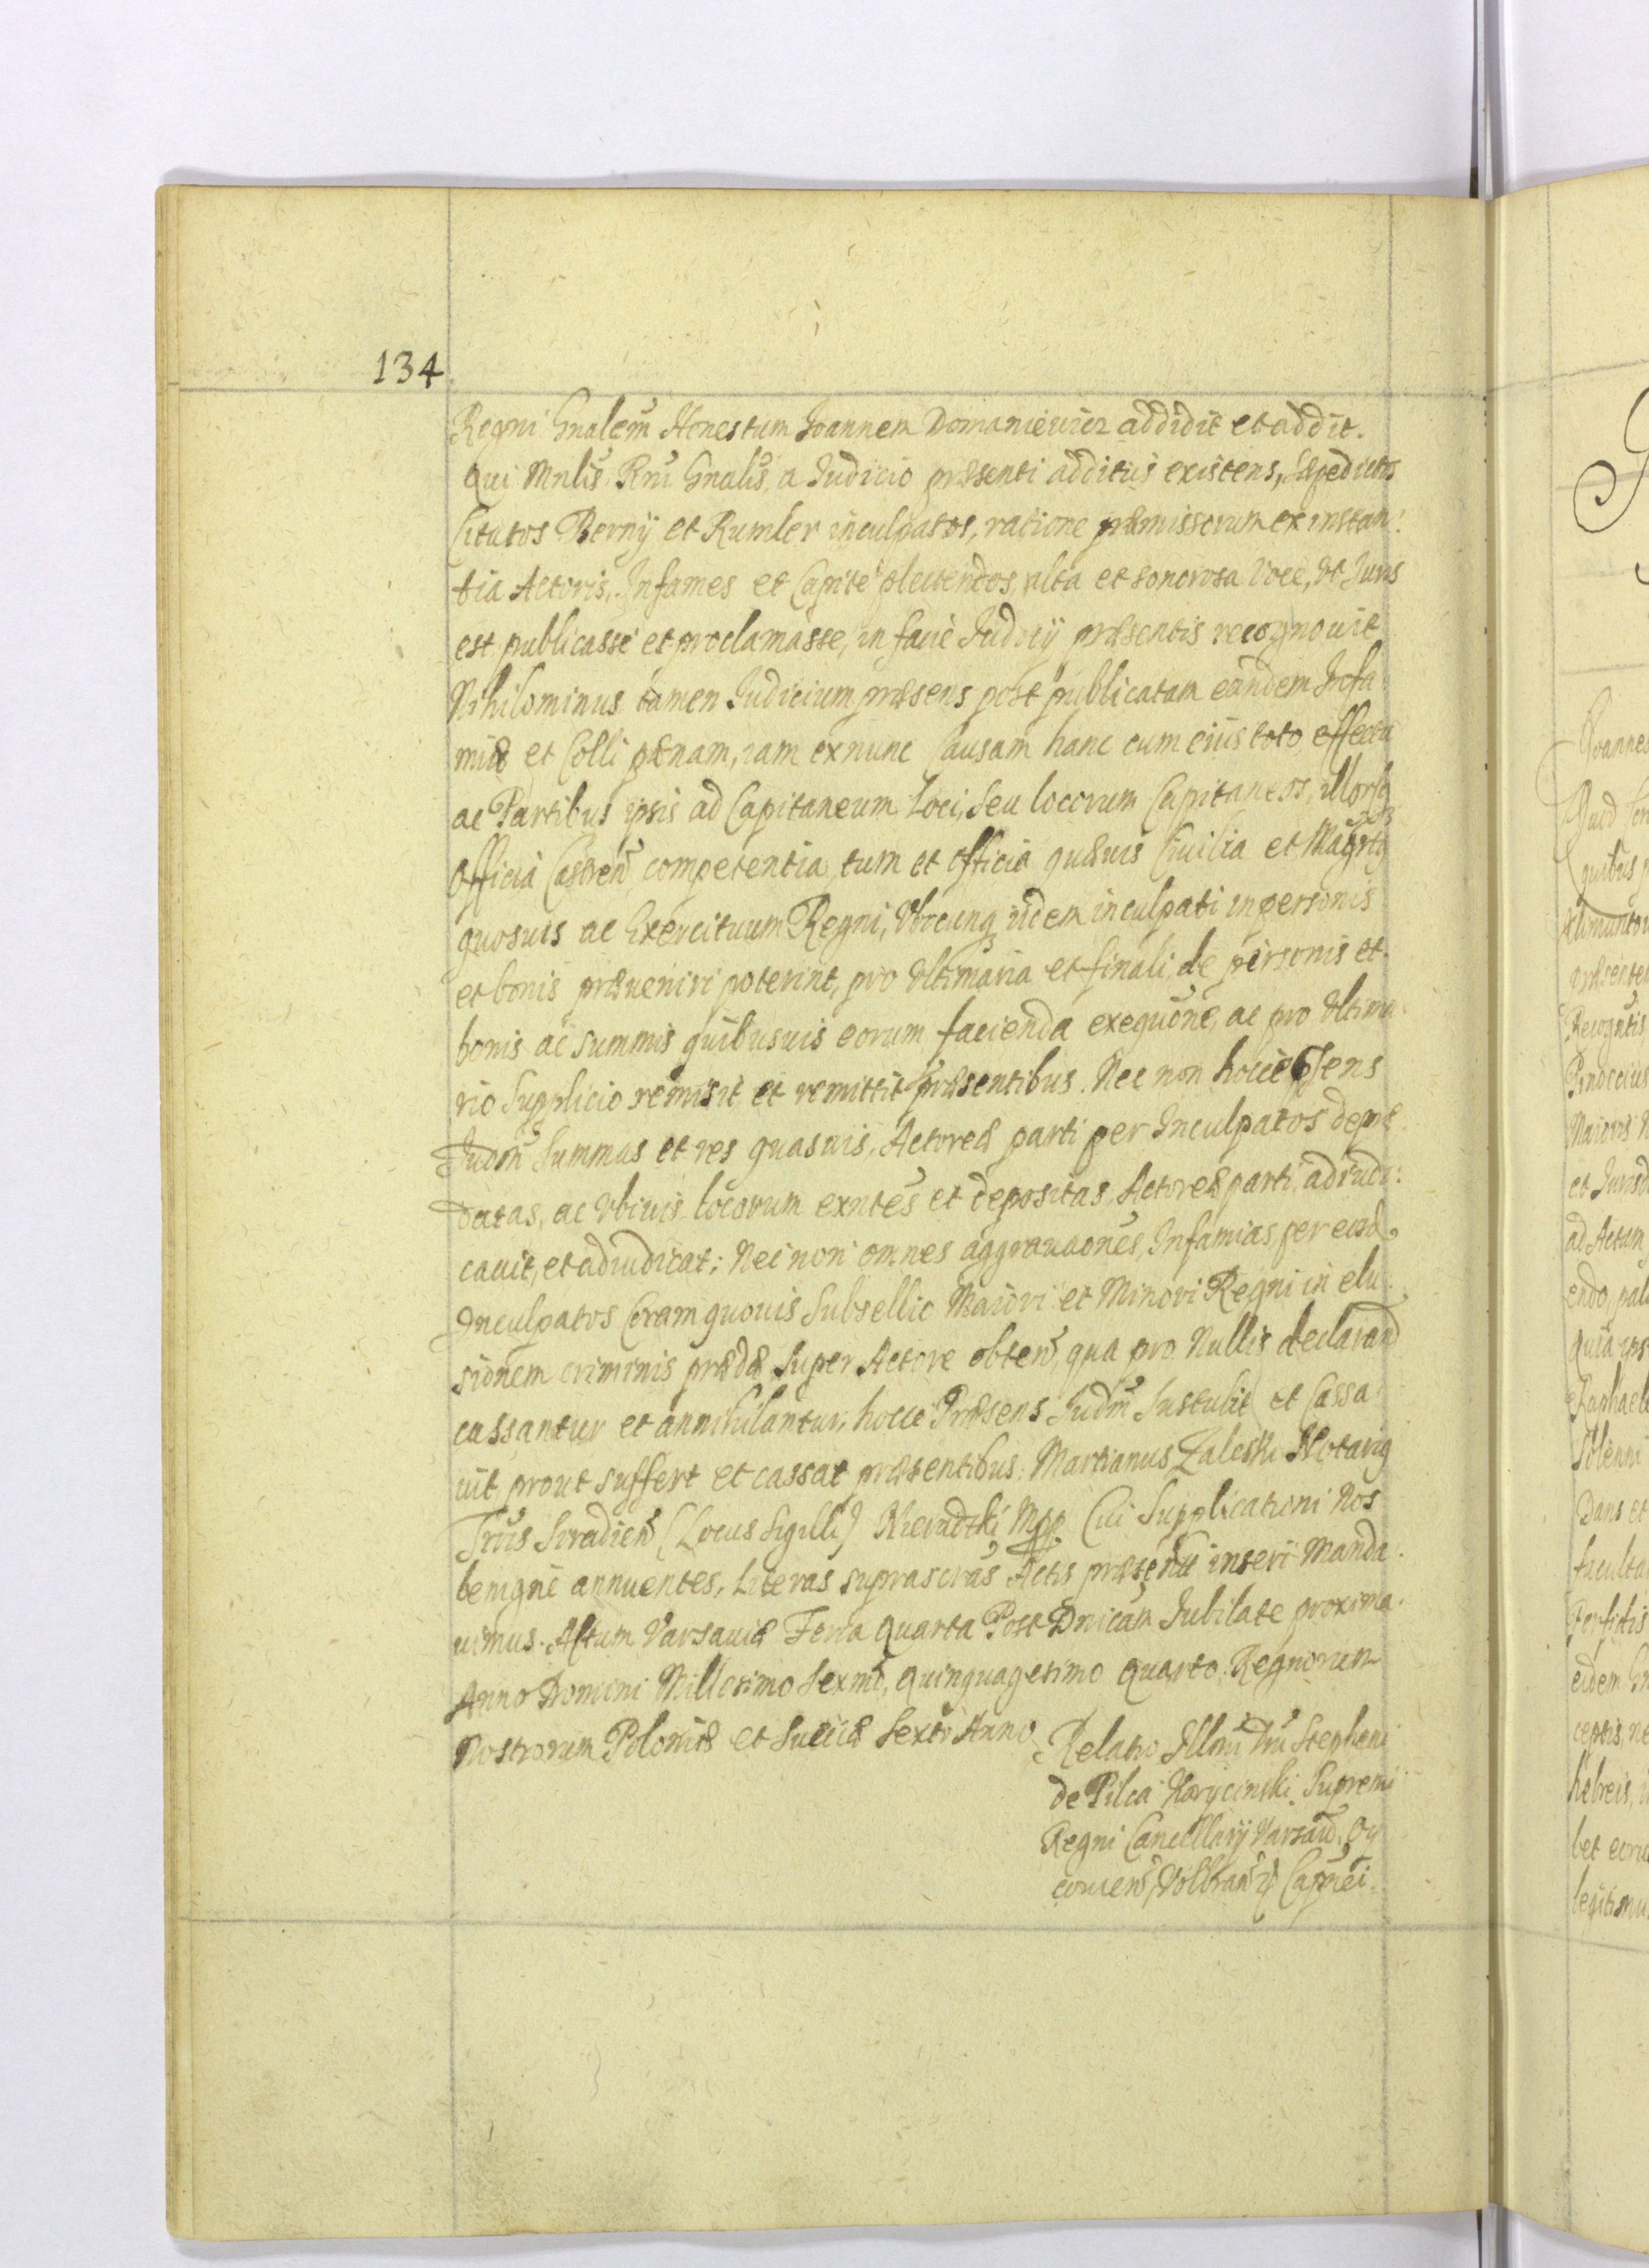 134
Regni Gnalem Honestum Joannem Domaniewicz addidit et addit.
Qui Mnlis Rni Gnalis, a Judicio præsenti additus existens, Sæpedictos
Citatos Berny et Rumler inculpatos, ratione præmissorum ex instan:
tia Actoris, Infames et Capite plectendos, alta et sonorosa voce, Vt Juris
est publicasse et proclamasse, in facie Judicij præsentis recognouit
Nihilominus tamen Judicium præsens post publicatam eandem Infa
miæ et Colli pænam, iam ex nunc Causam hanc cum eius toto effectu
ac Partibus ipsis ad Capitaneum Loci, Seu locorum Capitaneos, illorūq
Officia Castren competentia, tum et officia quæuis Ciuilia et Magrtus
quosuis ac Exercituum Regni, Vbicunq iidem inculpati in personis
et bonis præueniri poterint, pro Vltimaria et finali, de personis et
bonis ac summis quibusuis eorum facienda exequone, ac pro Vltima
rio Supplicio remisit et remittit præsentibus. Nec non hocce Psens
Judm Summas et res quasuis, Actoreæ parti per Inculpatos depræ
datas, ac Vbiuis locorum exntes et depositas, Actoreæ parti adiudi:
cauit, et adiudicat; Nec non omnes aggrauaones, Infamias per eosd
Inculpatos Coram quouis Subsellio Maiori et Minori Regni in elu
sionem criminis prædæ super Actore obten, qua pro Nullis declarand
cassantur et annihilantur, hocce Præsens Judm Sustulit et Cassa
uit prout suffert et cassat præsentibus. Martianus Zaleski Notariq
Trris Siradien (Locus Sigilli) Mpp. Cui Supplicationi Nos
benigne annuentes, Literas suprascras Actis præsentib inseri Manda
uimus. Actum Varsauiæ Feria Quarta Post Dnicam Jubilate proxima.
Anno Domini Millesimo Sexmo, Quinquagesimo Quarto. Regnorum
Nostrorum Poloniæ et Sueciæ Sexto Anno
Relatio Illmi Dni Stephani
de Pilca Korycinski. Supremi
Regni Cancellarij Varsauien. Oy
couien, Volbramen Capnei.